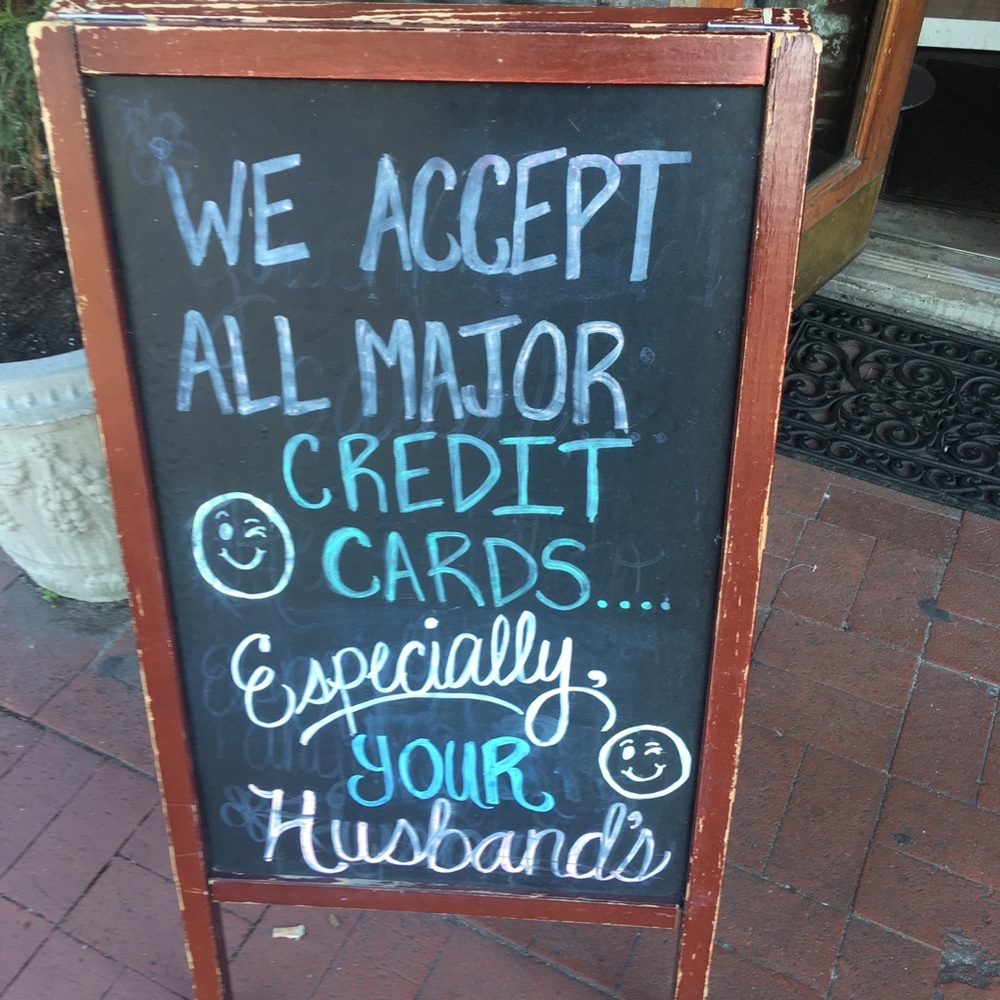 WE ACCEPT
ALL MAJOR
CREDIT
CARDS....
Especially,
YOUR
Husband's